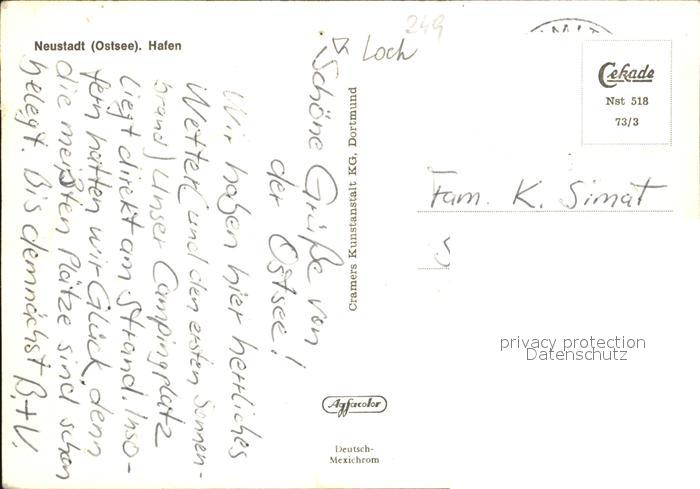 249
Neustadt (Ostsee). Hafen
Loch
Schöne Grüße von
der Ostsee!
Wir haben hier herrliches
Wetter (und den ersten Sonnen-
brand) Unser Campingplatz
liegt direkt am Strand. Inso-
fern hatten wir Glück, denn
die meißten Plätze sind schon
belegt. Bis demnächst B.+V.
Cramers Kunstanstalt KG. Dortmund
Cekade
Nst 518
73/3
Fam. K. Simat
privacy protection
Datenschutz
Agfacolor
Deutsch-
Mexichrom